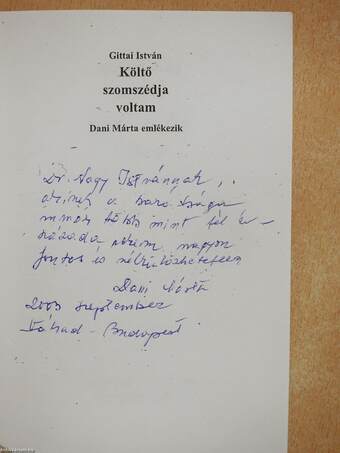 Gittai István
Költő
szomszédja
voltam
Dani Márta emlékezik
Dr. Nagy Istvánnak,
akinek a barátsága
immár több mint fél év-
századа nekem nagyon
fontos és nélkülözhetetlen
Dani Márta
2003 szeptember
Várad - Budapest